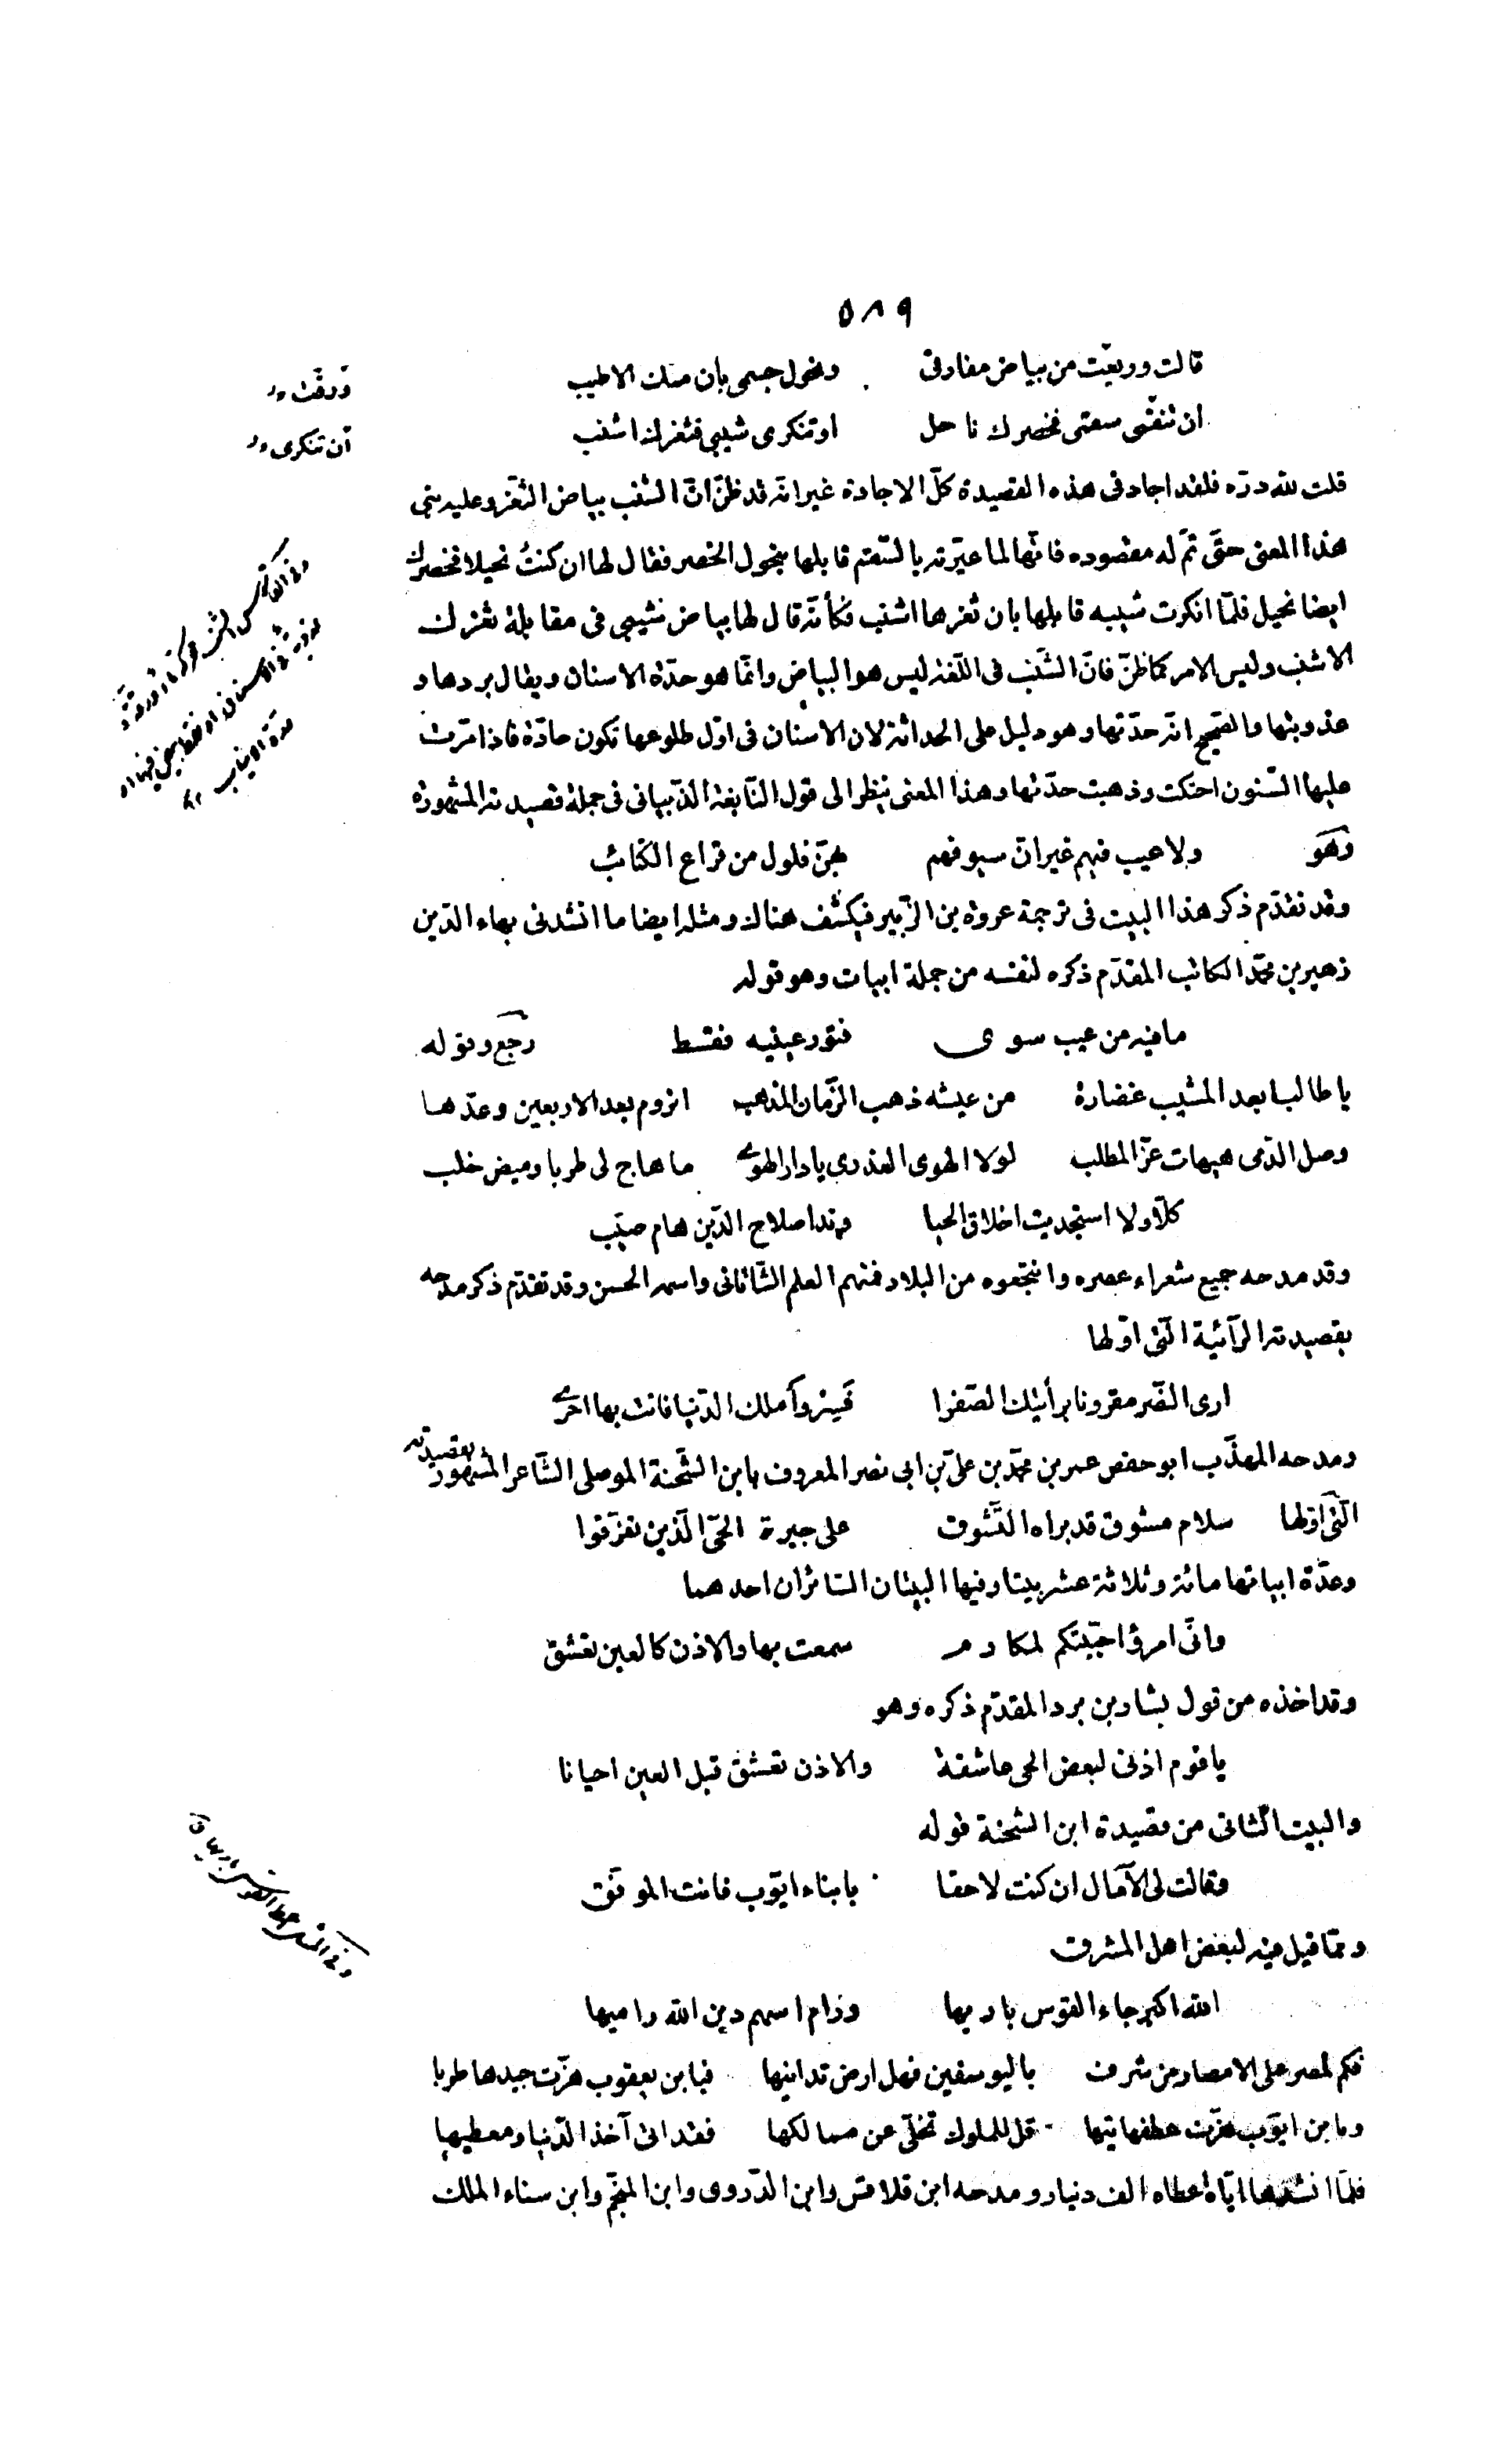 ٥٨٩
قالت وريعت من بياض مفارقى ونحول جسمى بان منك الاطيب
ان تنقمى سقمى فخصرك ناحل او تنكرى شيبى فثغرك اشنب
ورقت
ان تنكرى
قلت لله درّه فلقد اجاد فى هذه القصيدة كلّ الاجادة غير انّه قد ظنّ انّ الشنب بياض الثغر وعليه بنى
هذا المعنى حتّى تمّ له مقصوده فانّها لما عيّرته بالسّقم قابلها بنحول الخصر فقال لها ان كنتُ نحيلا فخصرك
ايضا نحيل فلمّا انكرت شيبه قابلها بان ثغرها اشنب فكأنّه قال لها بياض شيبى فى مقابلة ثغرك
الاشنب وليس الامر كما ظنّ فانّ الشّنب فى اللّغة ليس هو البياض وانّما هو حدّة الاسنان ويقال بردها و
عذوبتها والصّحيح انّه حدّتها وهو دليل على الحداثة لان الاسنان فى اوّل طلوعها تكون حادّة فاذا مرّت
عليها السّنون احتكت وذهبت حدّتها وهذا المعنى ينظر الى قول النّابغة الذّبيانى فى جملة قصيدته المشهورة
وهو ولا عيب فيهم غير انّ سيوفهم بهنّ فلول من قراع الكتائب
وقد تقدّم ذكر هذا البيت فى ترجمة عروة بن الزّبير فيكشف هناك ومثله ايضا ما انشدنى بهاء الدّين
زهير بن محمّد الكاتب المقدّم ذكره لنفسه من جملة ابيات وهو قوله
ما فيه من عيب سوى فتور عينيه فقط رجع وقوله
يا طالبا بعد المشيب غضارة من عيشه ذهب الزّمان المذهب اتروم بعد الاربعين وعدّها
وصل الدّمى هيهات عزّ المطلب لولا الهوى العذرى يا دار الهوى ما هاج لى طربا وميض خلب
كلّا ولا استجديت اخلاق الحيا وندا صلاح الدّين هام صيّب
وقد مدحه جميع شعراء عصره وانتجعوه من البلاد فمنهم العلم الشّاتانى واسمه الحسن وقد تقدّم ذكر مدحه
بقصيدته الرّآئية الّتى اوّلها
ارى النّصر مقرونا برأيتك الصّفرا فسر وآملك الدّنيا فانت بها احرى
ومدحه المهذّب ابو حفص عمر بن محمّد بن علىّ بن ابى نصر المعروف بابن الشّحنة الموصلى الشّاعر المشهور بقصيدته
الّتى اوّلها سلام مشوق قد براه التّشوق على جيرة الحىّ الّذين تفرّقوا
وعدّة ابياتها مائة وثلاثة عشر بيتا وفيها البيتان السّائران احدهما
وانّى امرؤ احببتكم لمكارم سمعت بها والاذن كالعين تعشق
وقد اخذه من قول بشار بن برد المقدّم ذكره وهو
يا قوم اذنى لبعض الحى عاشقة والاذن تعشق قبل العين احيانا
والبيت الثّانى من قصيدة ابن الشّحنة قوله
وقالت لى الآمال ان كنت لاحقا بابناء ايّوب فانت الموفّق
وممّا قيل فيه لبعض اهل المشرق
الله اكبر جاء القوس باريها ورام اسهم دين الله راميها
فكم لمصر على الامصار من شرف باليوسفين فهل ارض تدانيها فبابن يعقوب هزّت جيدها طربا
وبابن ايّوب هزّت عطفها تيها قل للملوك تخلّى عن ممالكها فقد اتى آخذ الدّنيا ومعطيها
فلمّا انشدها ايّاه اعطاه الف دينار ومدحه ابن قلاقس وابن الذّروى وابن المنجّم وابن سناء الملك